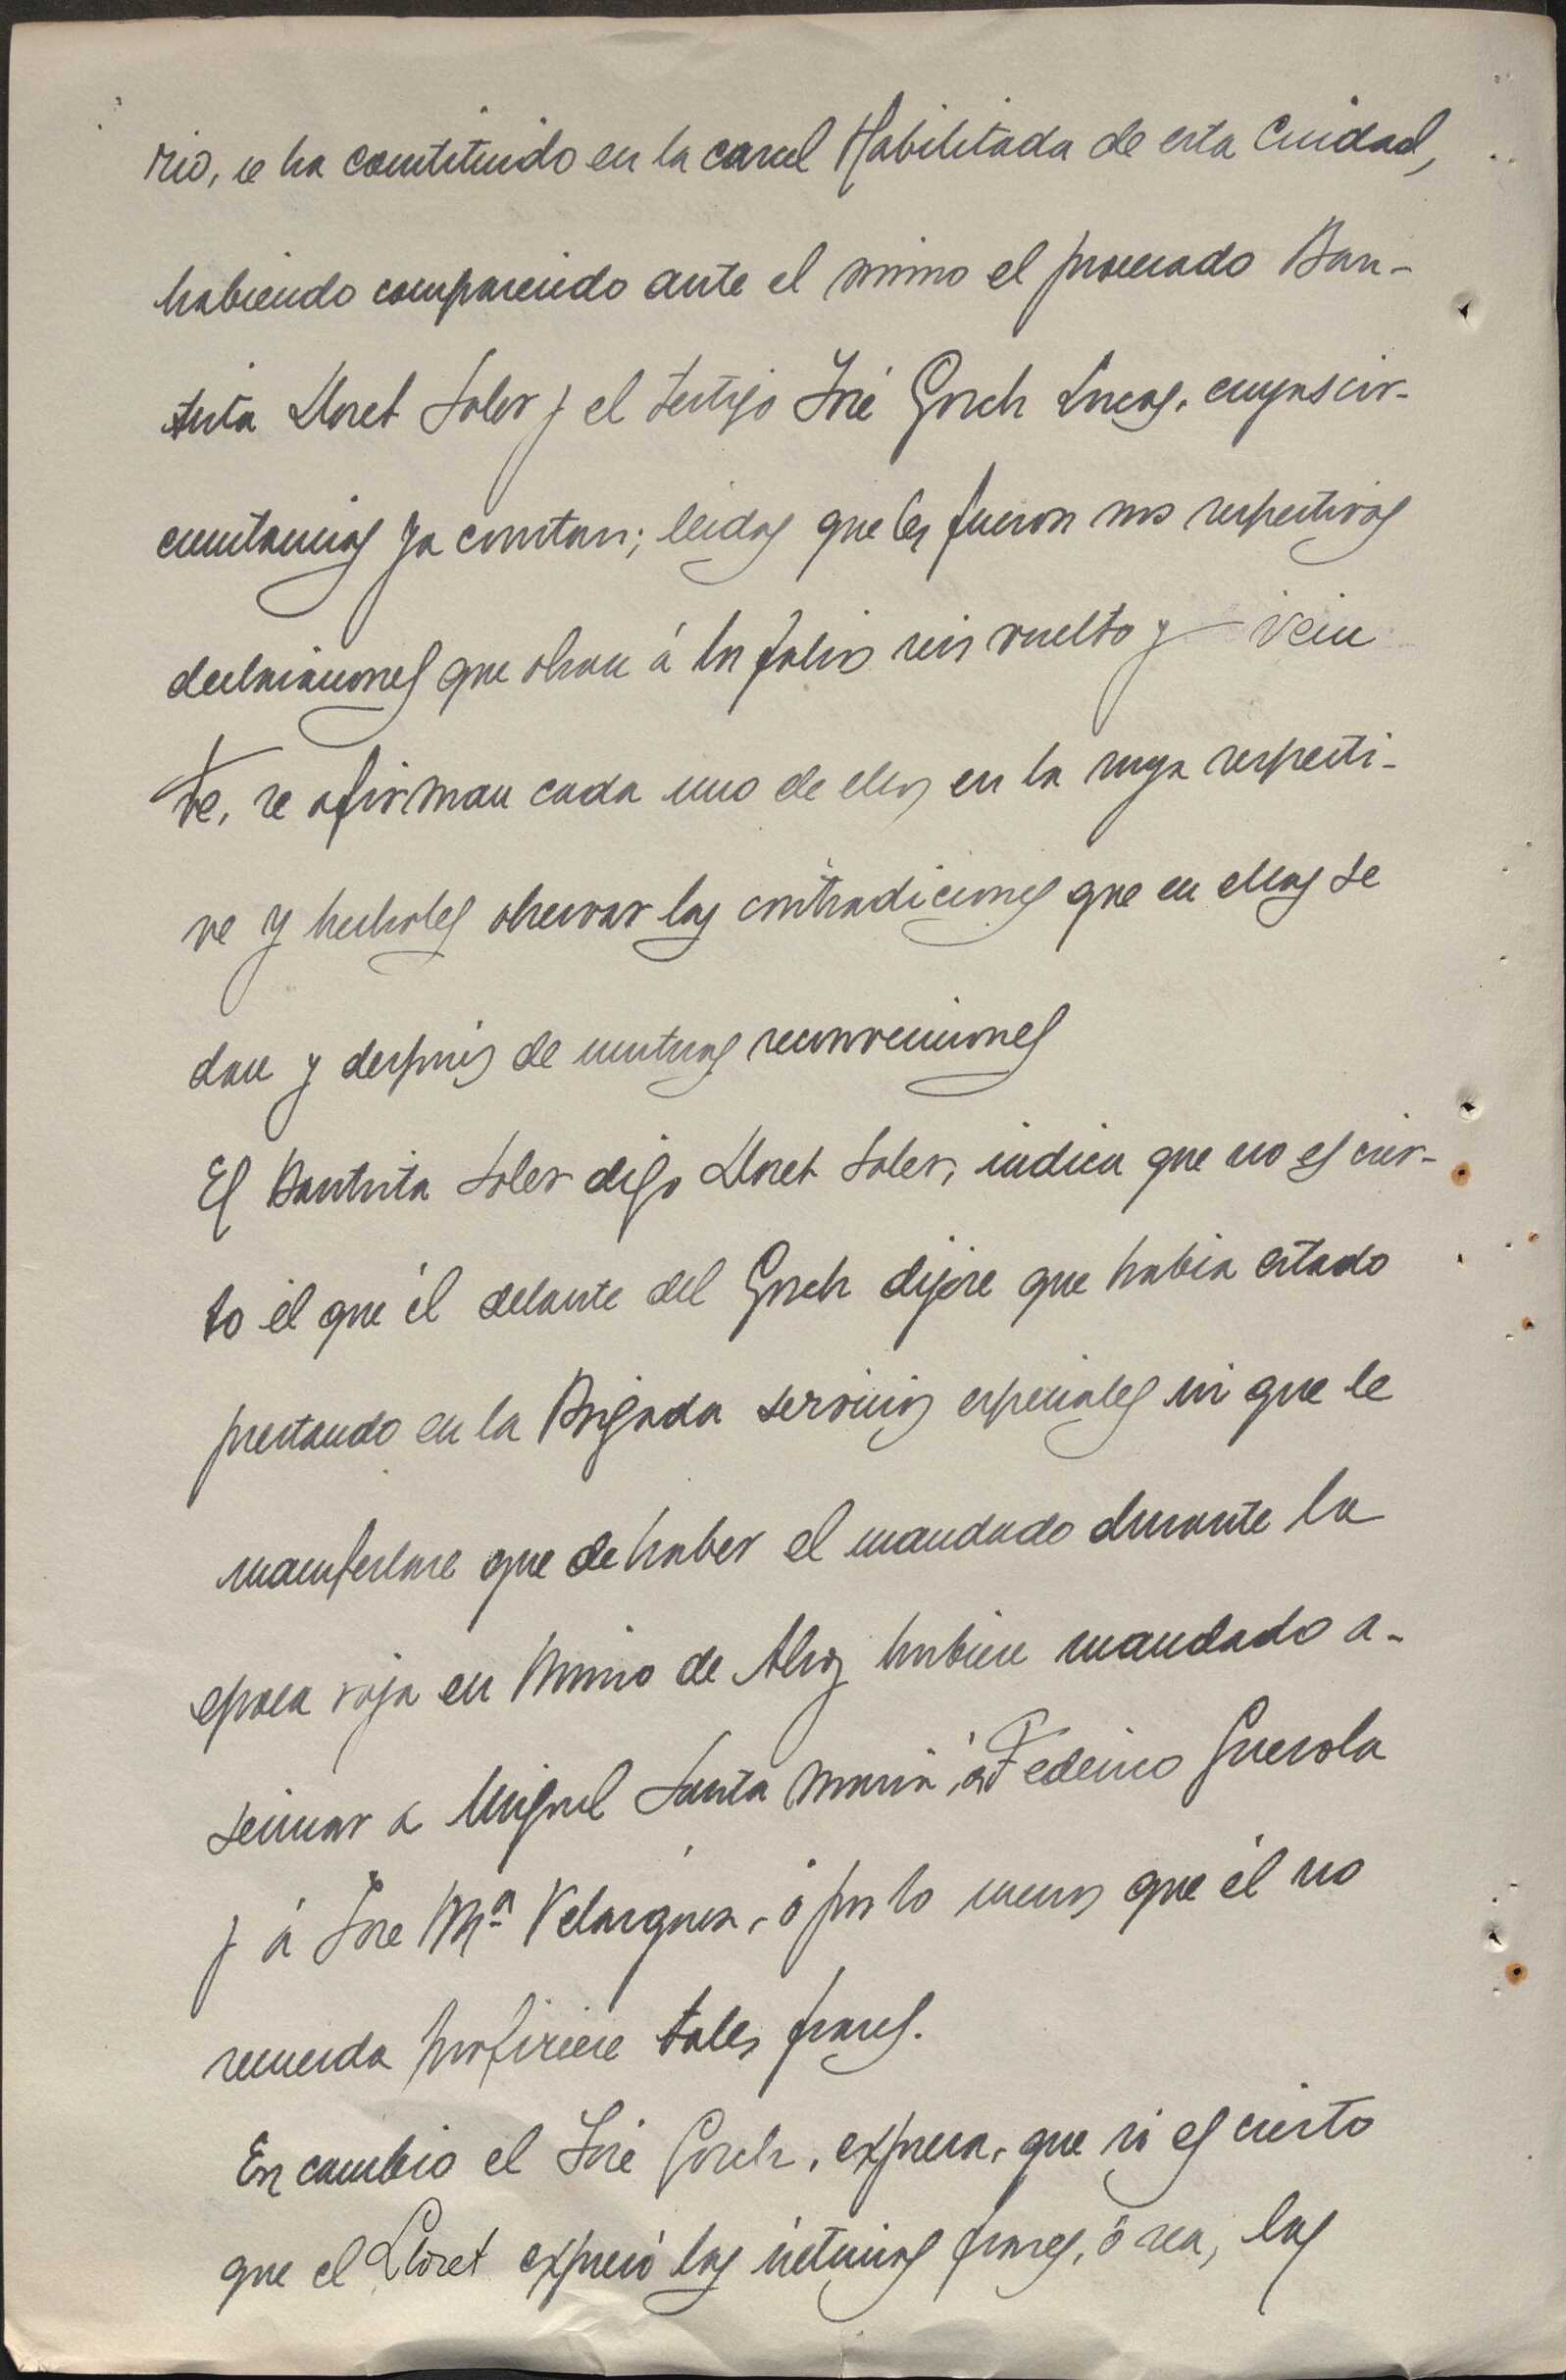 rio, se ha constituido en la carcel Habilitada de esta Ciudad,
habiendo comparecido ante el mismo el procesado Bau-
tista Lloret Soler y el testigo José Gosch Lucas, cuyas cir-
cunstancias ya constan; leidas que les fueron sus respectivas
declaraciones que obran á los folios seis vuelto y vein
te, se afirman cada uno de ellos en la suya respecti-
va y hecholes observar las contradiciones que en ellas se
dan y después de mutuas reconvenciones
El Bautista Soler digo Lloret Soler, indica que no es cier-
to él que él delante del Gosch dijese que habia estado
prestando en la Brigada servicios especiales ni que le
manifestase que de haber el mandado durante la
epoca roja en Muro de Alcoy hubiese mandado a-
sesinar a Miguel Santa Maria, á Federico Guerola
y á Jose Mª Velazquez, ó por lo menos que él no
recuerda profiriese tales frases.
En cambio el José Gosch, expresa, que si es cierto
que el Lloret expresó las últimas frases, ó sea, las